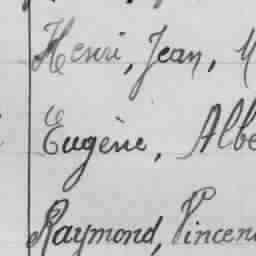 Henri, Jean, M
Eugène, Albe
Raymond, Vincen